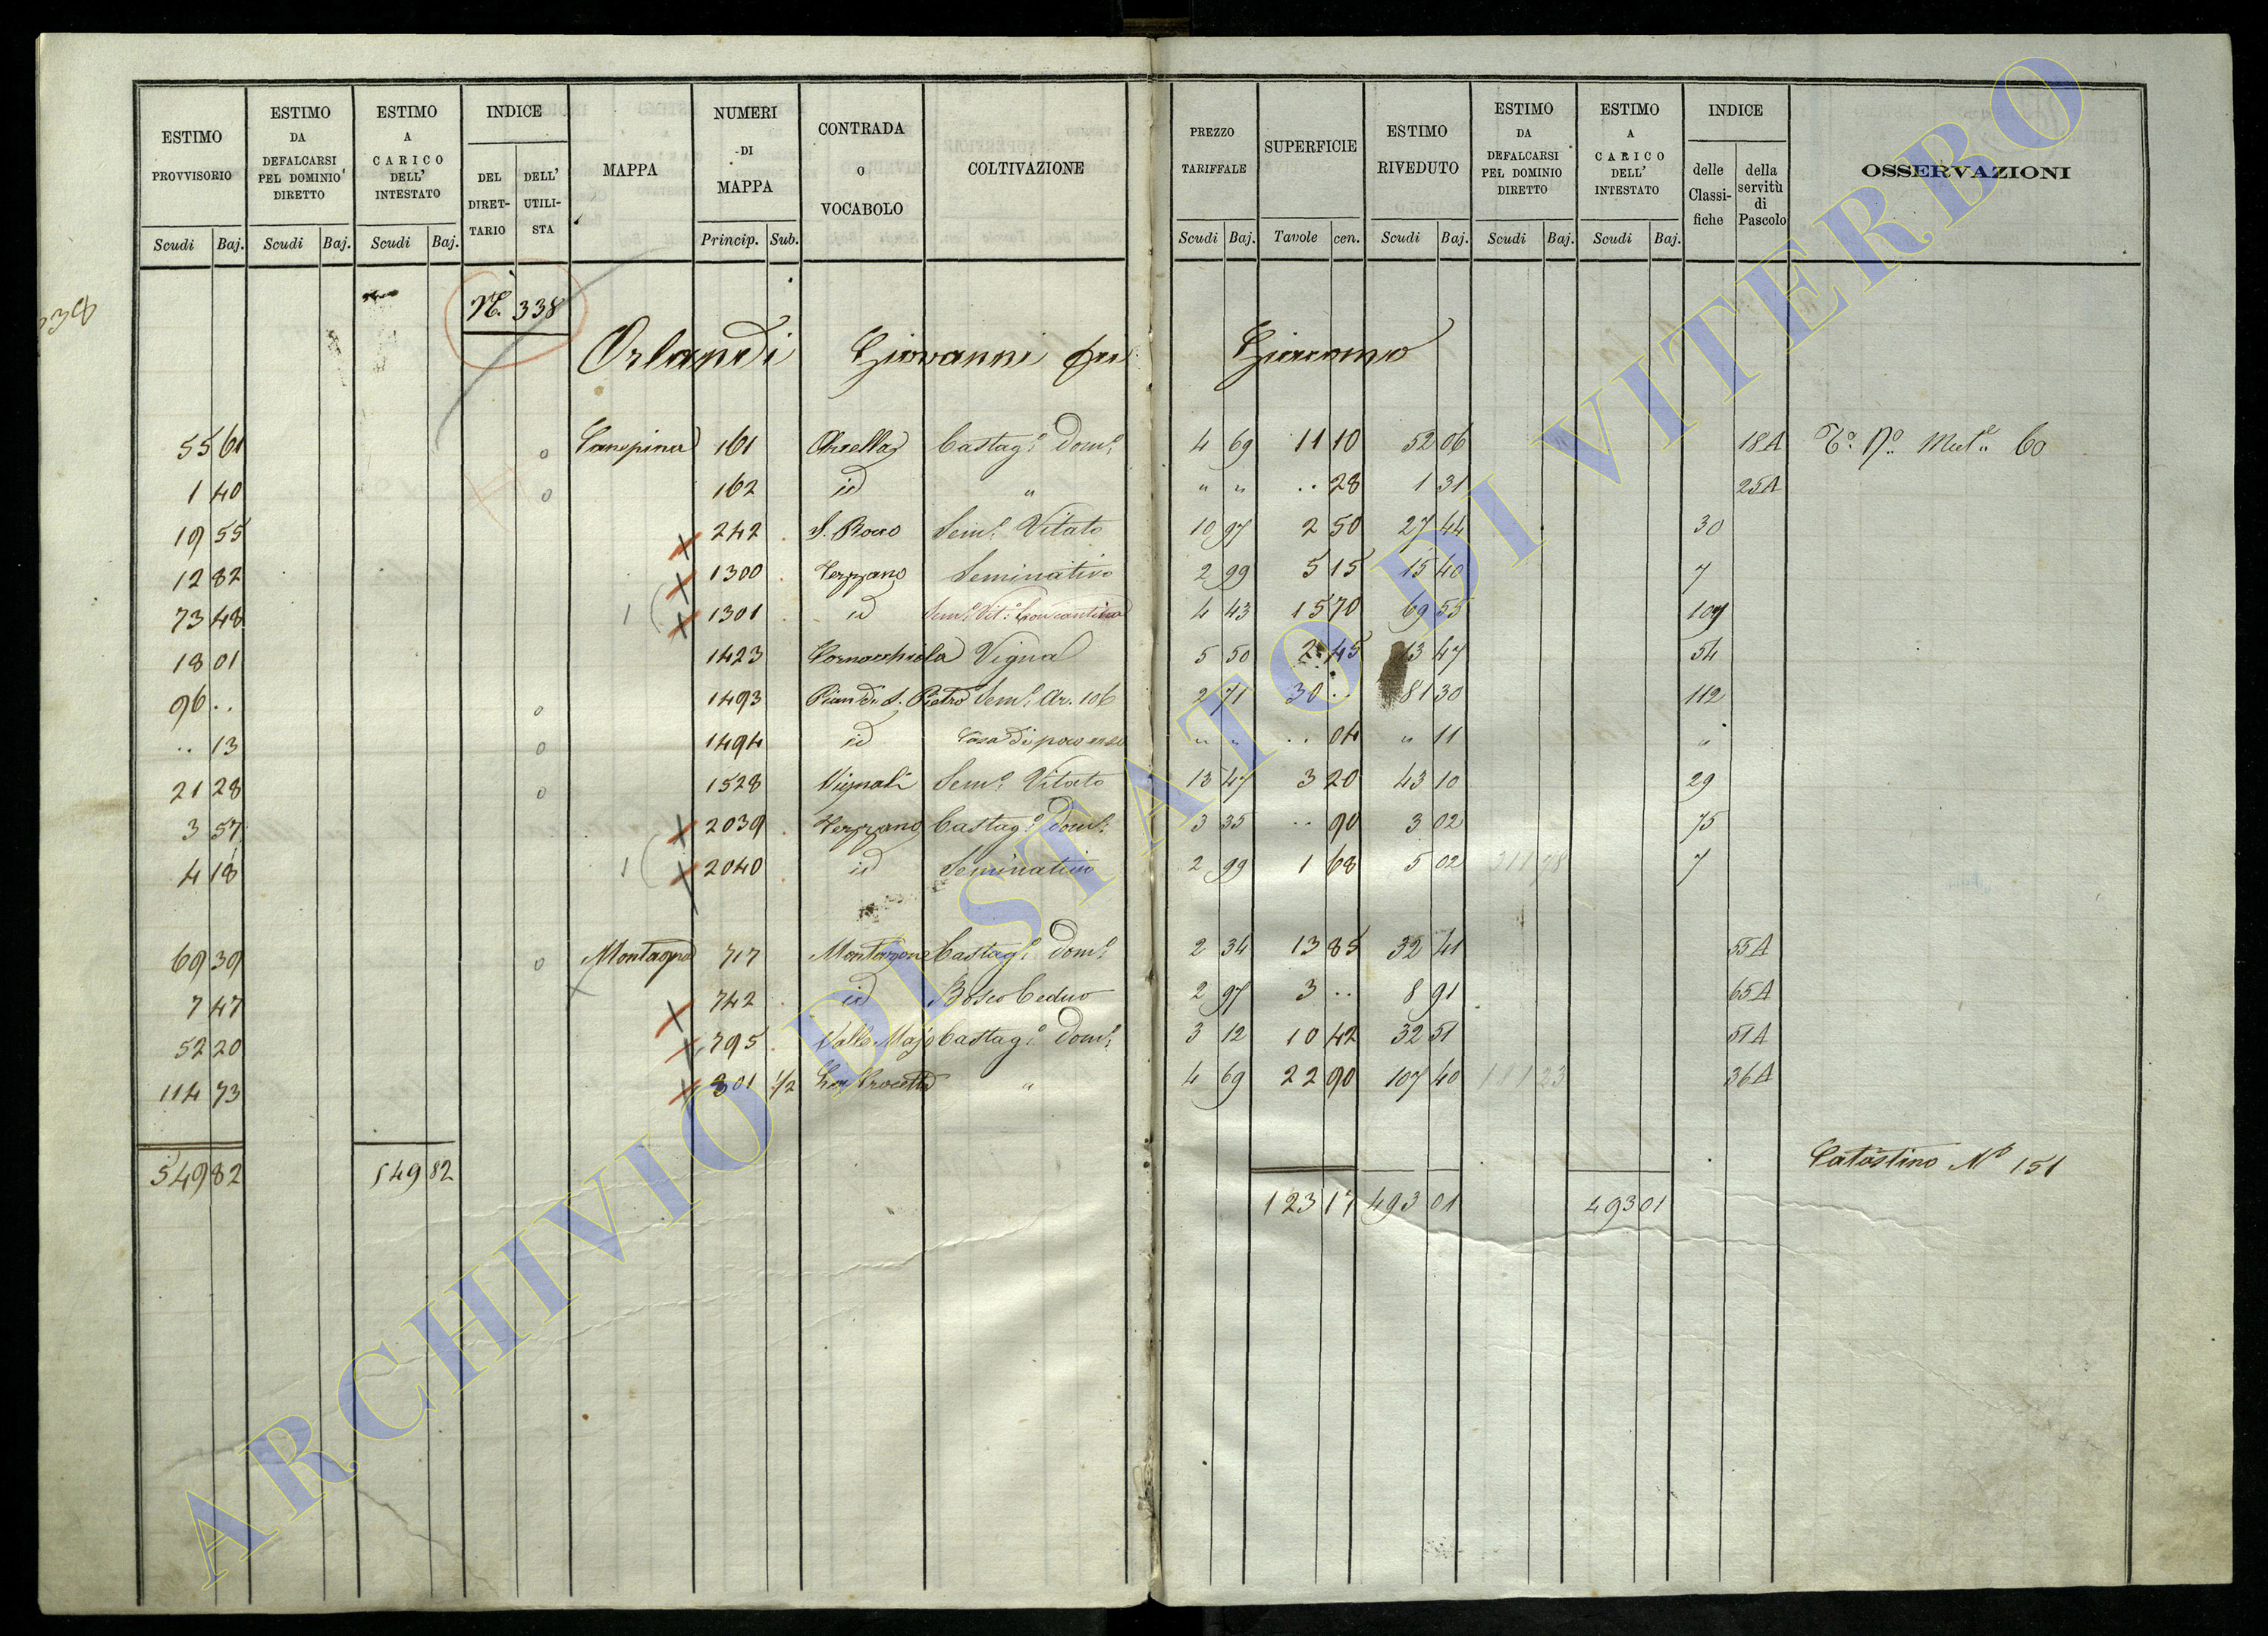 ESTIMO PROVVISORIO | ESTIMO DA DEFALCARSI PEL DOMINIO DIRETTO | ESTIMO A CARICO DELL' INTESTATO | INDICE | MAPPA | NUMERI DI MAPPA | CONTRADA O VOCABOLO | COLTIVAZIONE | PREZZO TARIFFALE | SUPERFICIE | ESTIMO RIVEDUTO | ESTIMO DA DEFALCARSI PEL DOMINIO DIRETTO | ESTIMO A CARICO DELL' INTESTATO | INDICE | OSSERVAZIONI
DEL DIRET-TARIO | DELL' UTILI-STA | delle Classi-fiche | della servitù di Pascolo
Scudi | Baj. | Scudi | Baj. | Scudi | Baj. | Princip. | Sub. | Scudi | Baj. | Tavole | cen. | Scudi | Baj. | Scudi | Baj. | Scudi | Baj.
N. 338
Orlandi Giovanni Giacomo
55 61 | o | Canepina | 161 | Castag.o Dom. | 4 69 | 11 10 | 52 06 | 18A | 60
1 40 | o | 162 | id | " | " " | .. 28 | 1 31 | 25A
19 55 | 242 | S. Rocco | Sem.o Vitato | 10 97 | 2 50 | 27 44 | 30
12 82 | 1300 | Verzano | Seminativo | 2 99 | 5 15 | 15 40 | 7
73 48 | 1 | 1301 | id | Sem.o Vit.o | 4 43 | 15 70 | 69 55 | 109
18 01 | 1423 | Cornacchiola | Vigna | 5 50 | 2 45 | 13 47 | 54
96 .. | o | 1493 | Pian di S. Pietro | Sem.o Ar. 106 | 2 71 | 30 .. | 81 30 | 112
.. 13 | o | 1494 | id | Casa di poco | " " | .. 04 | " 11 | "
21 28 | o | 1528 | Vignali | Sem.o Vitato | 13 47 | 3 20 | 43 10 | 29
3 57 | 2039 | Verzano | Castag.o Dom. | 3 35 | .. 90 | 3 02 | 75
4 18 | 1 | 2040 | id | Seminativo | 2 99 | 1 68 | 5 02 | 311 78 | 7
69 39 | o | Montagna | 717 | Montarone | Castag.o Dom. | 2 34 | 13 85 | 32 41 | 55A
7 47 | 742 | id | Bosco Ceduo | 2 97 | 3 .. | 8 91 | 65A
52 20 | 795 | Valle Majo | Castag.o Dom. | 3 12 | 10 42 | 32 51 | 51A
114 73 | 801 | 1/2 | " | 4 69 | 22 90 | 107 40 | 181 23 | 36A
Catastino N.o 151
549 82 | 549 82 | 123 17 | 493 01 | 493 01
ARCHIVIO DI STATO DI VITERBO